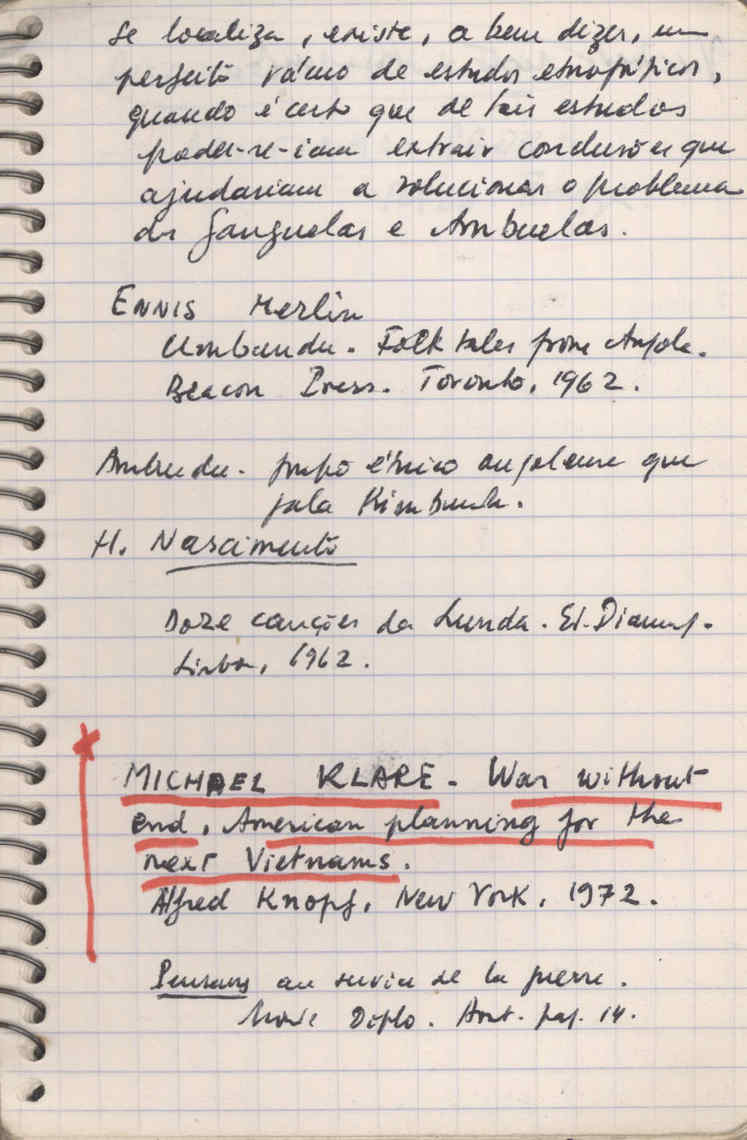 se localiza, existe, a bem dizer, um
perfeito vácuo de estudos etnográficos,
quando é certo que de tais estudos
poder-se-iam extrair conclusões que
ajudariam a solucionar o problema
dos Ganguelas e Ambuelas.
ENNIS Merlin
Umbundu. Folk tales from Angola.
Beacon Press. Toronto, 1962.
Ambundu. grupo étnico angolense que
fala Kimbundu.
H. Nascimento
Doze canções da Lunda. Ed. Diamang.
Lisboa, 1962.
MICHAEL KLARE - War without
end, American planning for the
next Vietnams.
Alfred Knopf, New York, 1972.
au service de la guerre.
Diplo. pag. 14.